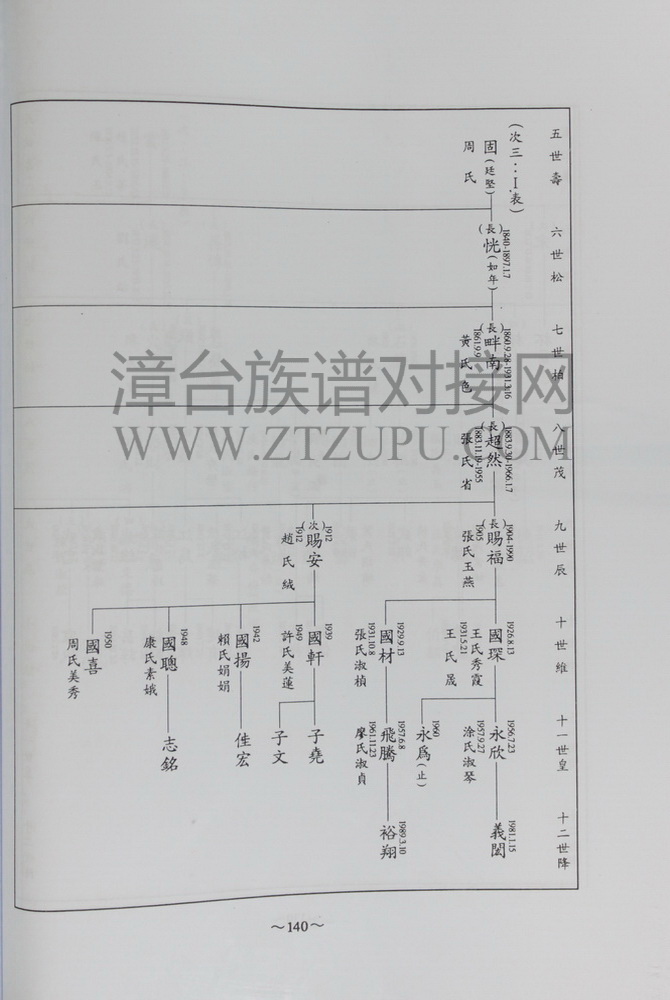 五世壽
六世松
七世柏
八世茂
九世辰
十世維
十一世皇
十二世隆
(次三:I.表)
固(廷堅)
周氏
1840-1897.1.7
(長)恍(如年)
1860.9.28-1931.3.16
(長)畔南
1861.9.9
黃氏色
1883.9.30-1966.1.7
(長)超然
1883.11.19-1955
張氏省
1904-1990
(長)賜福
1905
張氏玉燕
1912
(次)賜安
1912
趙氏絨
1926.8.13
國琛
王氏秀霞
1931.5.21
王氏晟
1929.9.13
國材
1931.10.8
張氏淑楨
1939
國軒
1949
許氏美蓮
1942
國揚
賴氏娟娟
1948
國聰
康氏素娥
1950
國喜
周氏美秀
1956.7.23
永欣
1957.9.27
涂氏淑琴
1960
永為(止)
1957.6.8
飛騰
1961.11.23
廖氏淑貞
子堯
子文
佳宏
志銘
1981.1.15
義閎
1989.3.10
裕翔
漳台族谱对接网
WWW.ZTZUPU.COM
～140～